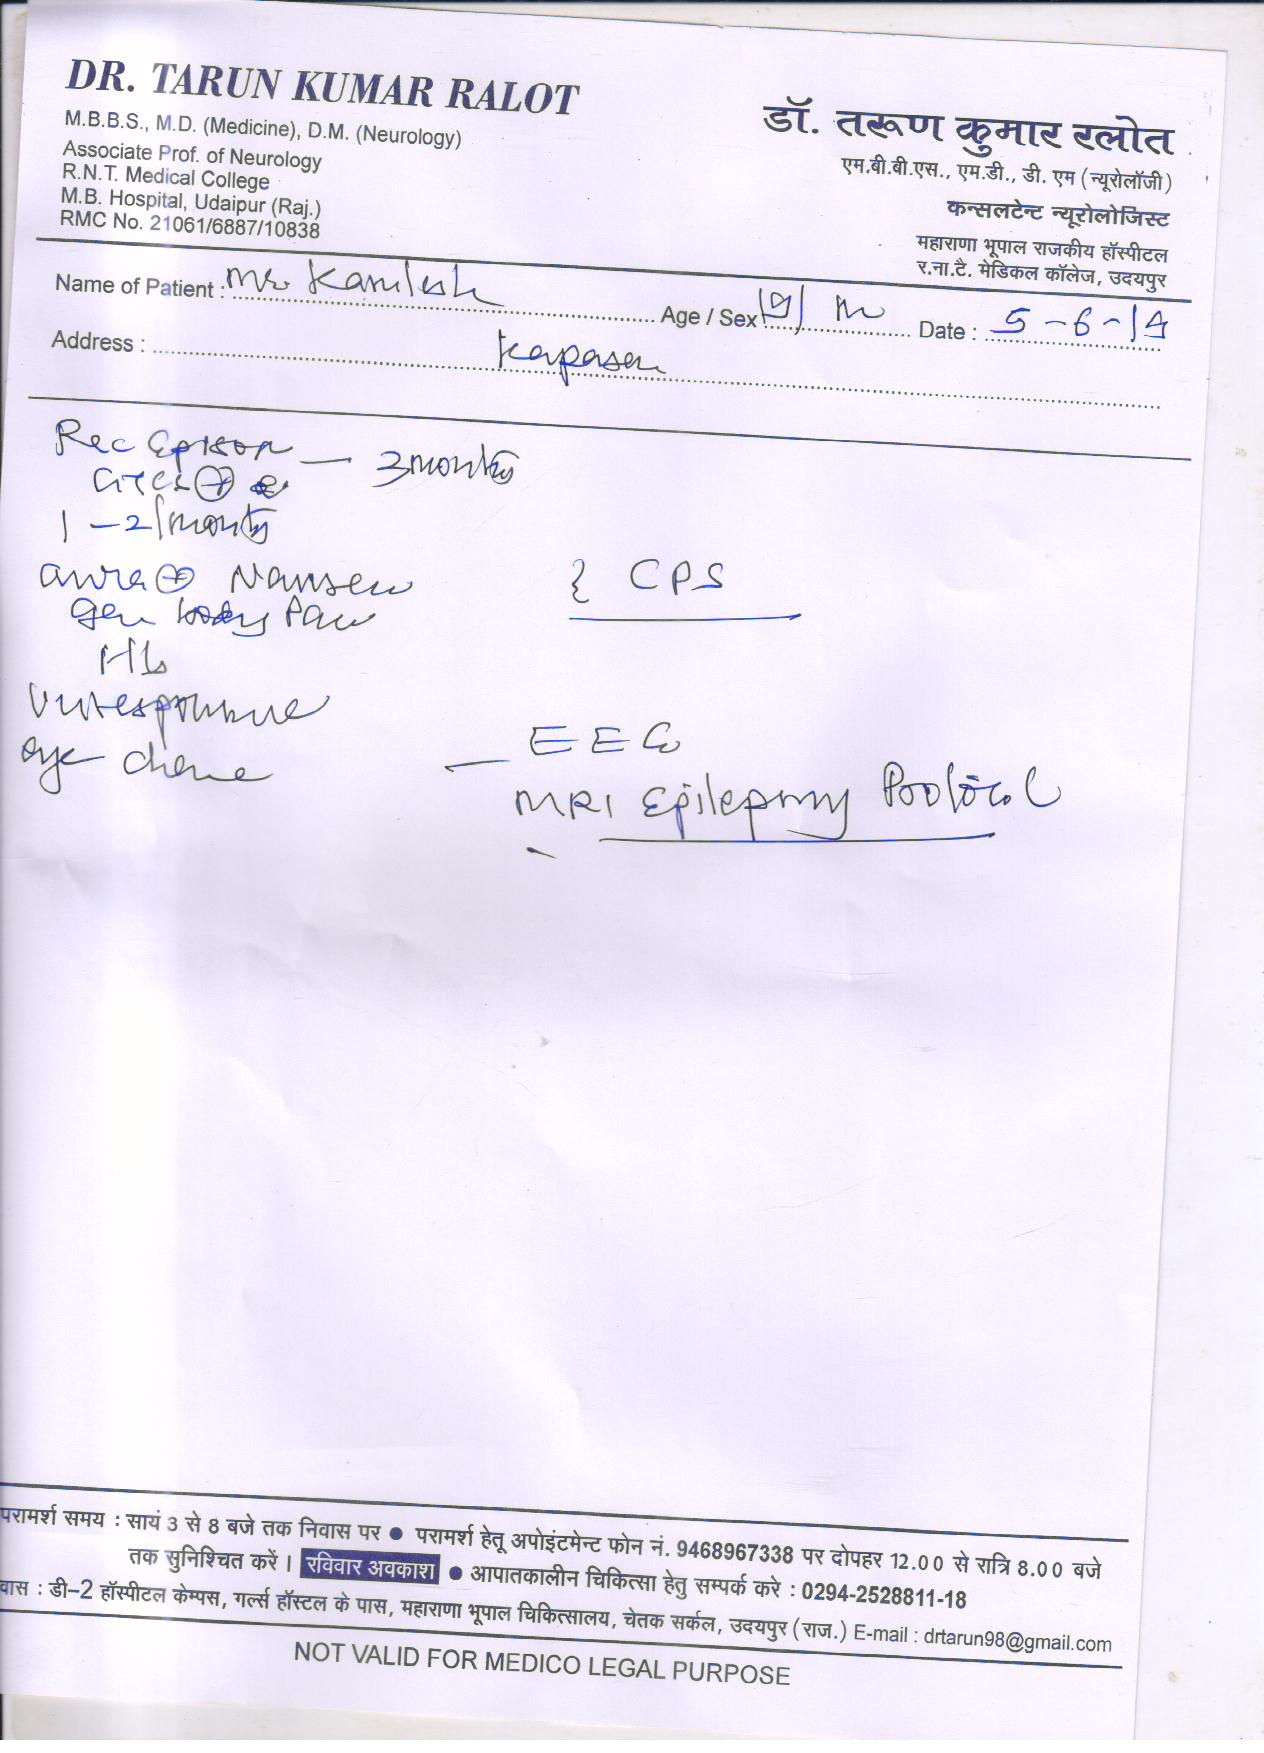 DR. TARUN KUMAR RALOT
M.B.B.S., M.D. (Medicine), D.M. (Neurology)
Associate Prof. of Neurology
R.N.T. Medical College
M.B. Hospital, Udaipur (Raj.)
RMC No. 21061/6887/10838
डॉ. तरूण कुमार रलोत
एम.बी.बी.एस., एम.डी., डी. एम (न्यूरोलॉजी)
कन्सलटेन्ट न्यूरोलोजिस्ट
महाराणा भूपाल राजकीय हॉस्पीटल
र.ना.टै. मेडिकल कॉलेज, उदयपुर
Name of Patient : Mr Kamlesh Age / Sex 19/ m Date : 5-6-19
Address : Kapasan
Rec Epison — 3 months
GTCS ⊕
1-2/month
aura ⊕ Nausea
gen body Pain
unresponsive
eye
} CPS
— EEG
MRI Epilepsy Protocol
परामर्श समय : सायं 3 से 8 बजे तक निवास पर ● परामर्श हेतू अपोइंटमेन्ट फोन नं. 9468967338 पर दोपहर 12.00 से रात्रि 8.00 बजे
तक सुनिश्चित करें। रविवार अवकाश ● आपातकालीन चिकित्सा हेतु सम्पर्क करे : 0294-2528811-18
वास : डी-2 हॉस्पीटल केम्पस, गर्ल्स हॉस्टल के पास, महाराणा भूपाल चिकित्सालय, चेतक सर्कल, उदयपुर (राज.) E-mail : drtarun98@gmail.com
NOT VALID FOR MEDICO LEGAL PURPOSE